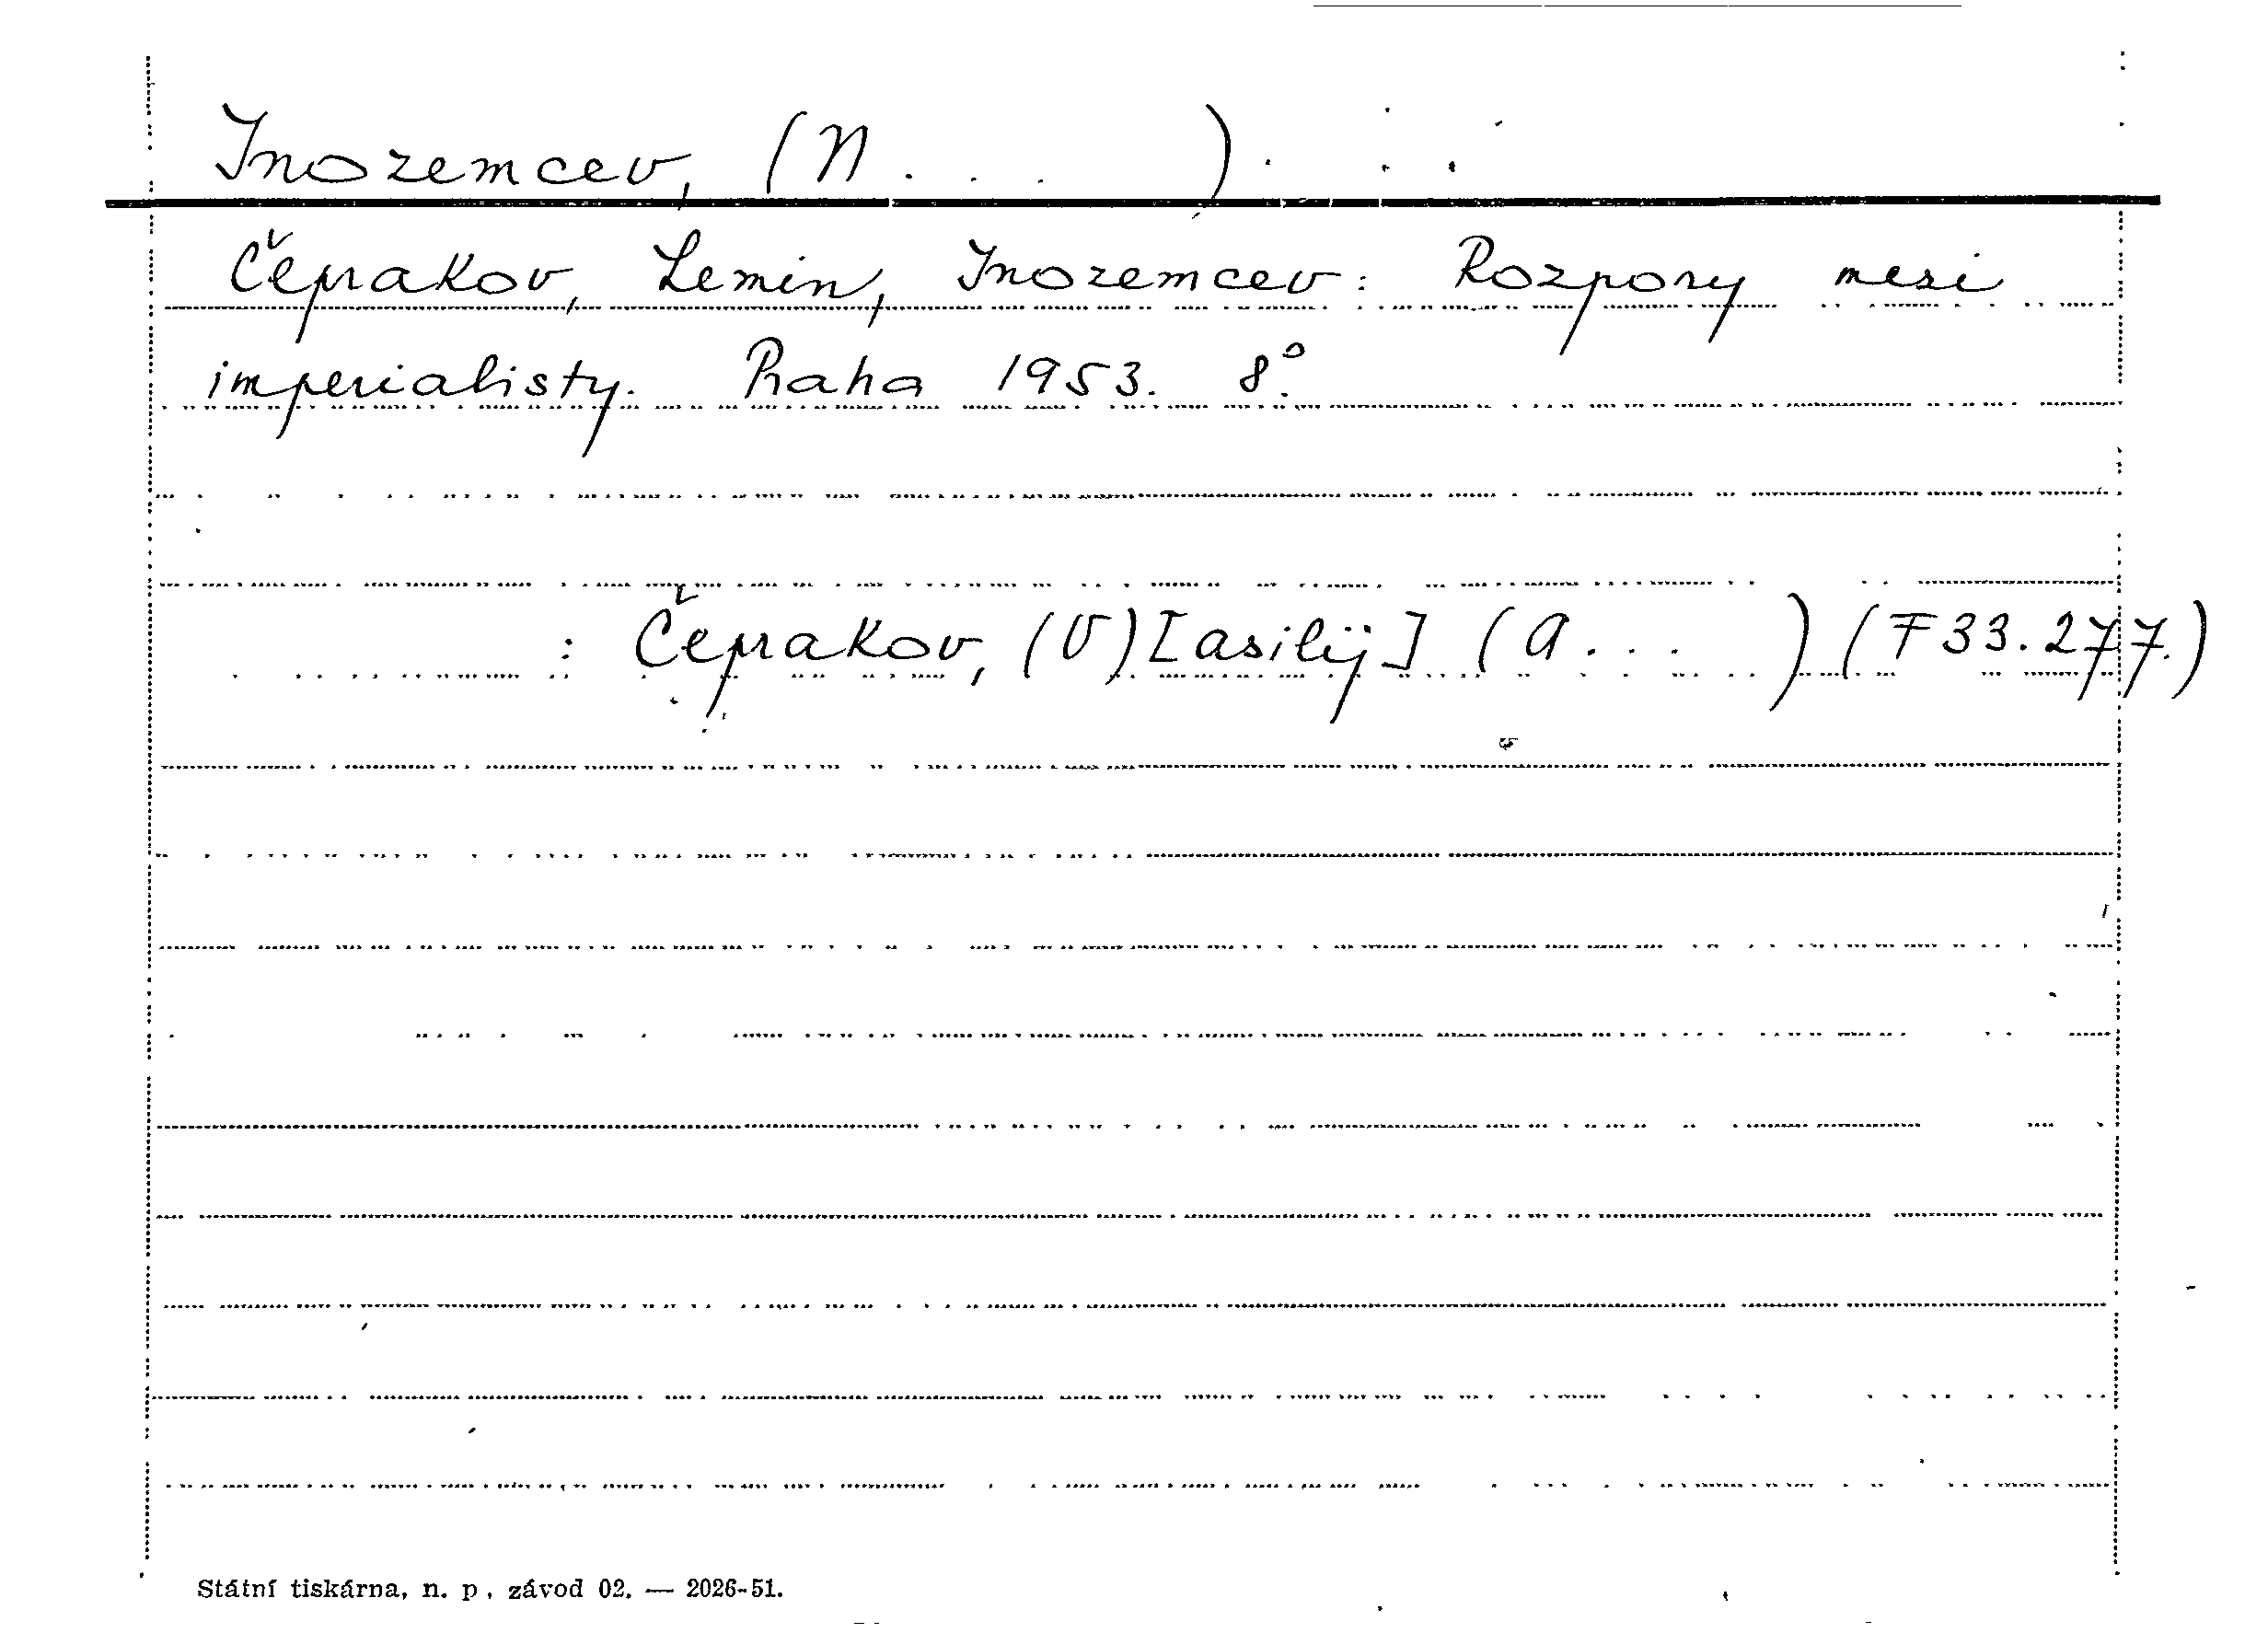 Inozemcev, (N . . . ).
Čeprakov, Lemin, Inozemcev: Rozpory mezi
imperialisty. Praha 1953. 8°.
: Čeprakov, (V)[asilij] (A . . . ) (F 33.277.)
Státní tiskárna, n. p., závod 02. — 2026-51.